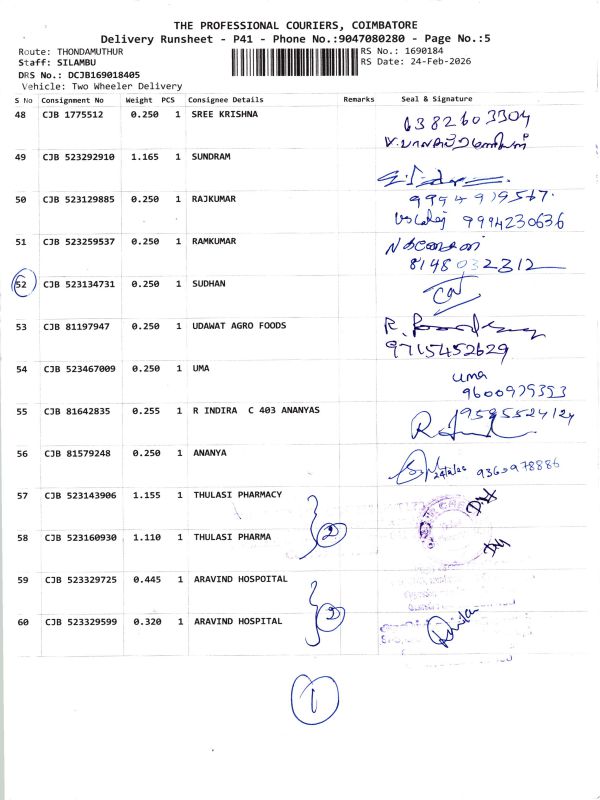 THE PROFESSIONAL COURIERS, COIMBATORE
Delivery Runsheet - P41 - Phone No.:9047080280 - Page No.:5
Route: THONDAMUTHUR
RS No.: 1690184
Staff: SILAMBU
RS Date: 24-Feb-2026
DRS No.: DCJB169018405
Vehicle: Two Wheeler Delivery
S No Consignment No Weight PCS Consignee Details Remarks Seal & Signature
48 CJB 1775512 0.250 1 SREE KRISHNA
6382603304
49 CJB 523292910 1.165 1 SUNDRAM
50 CJB 523129885 0.250 1 RAJKUMAR
9994230636
51 CJB 523259537 0.250 1 RAMKUMAR
8148032312
52 CJB 523134731 0.250 1 SUDHAN
53 CJB 81197947 0.250 1 UDAWAT AGRO FOODS
9715452629
54 CJB 523467009 0.250 1 UMA
uma
55 CJB 81642835 0.255 1 R INDIRA C 403 ANANYAS
56 CJB 81579248 0.250 1 ANANYA
57 CJB 523143906 1.155 1 THULASI PHARMACY
2
58 CJB 523160930 1.110 1 THULASI PHARMA
59 CJB 523329725 0.445 1 ARAVIND HOSPOITAL
2
60 CJB 523329599 0.320 1 ARAVIND HOSPITAL
1